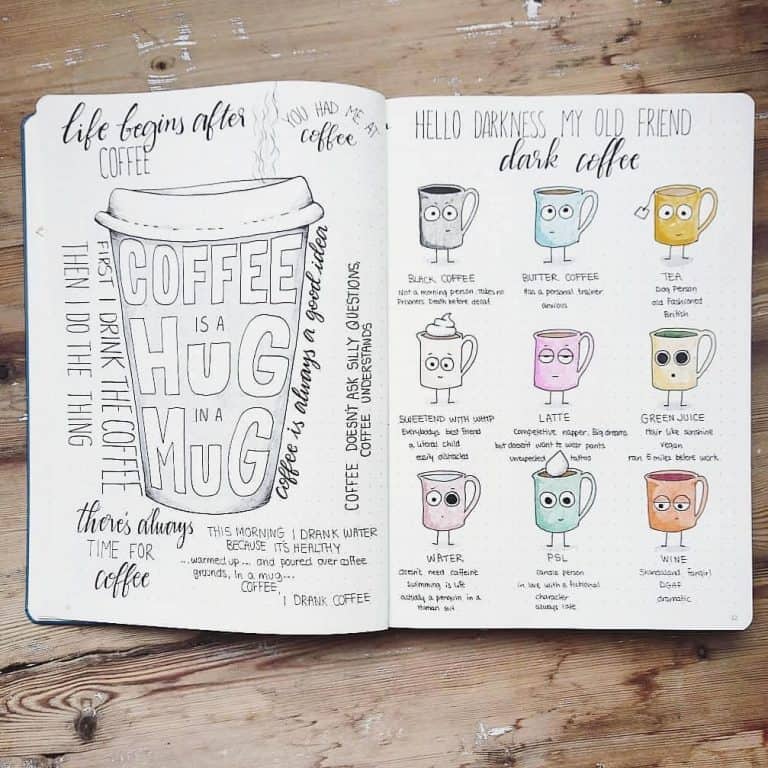 life begins after
COFFEE
YOU HAD ME AT
coffee
COFFEE
IS A
HUG
IN A
MUG
FIRST I DRINK THE COFFEE
THEN I DO THE THING
coffee is always a good idea
COFFEE DOESN'T ASK SILLY QUESTIONS,
COFFEE UNDERSTANDS
there's always
TIME FOR
coffee
THIS MORNING I DRANK WATER
BECAUSE IT'S HEALTHY
...warmed up... and poured over coffee
grounds, in a mug...
COFFEE,
I DRANK COFFEE
HELLO DARKNESS MY OLD FRIEND
dark coffee
BLACK COFFEE
Not a morning person. Takes no
Prisoners. Death before decaf
BUTTER COFFEE
Has a personal trainer
anxious
TEA
Dog Person
old Fashioned
British
SWEETEND WITH WHIP
Everybodys best Friend
a literal child
easily distracted
LATTE
Competetive napper. Big dreams
but doesnt want to wear pants
unexpected tattoo
GREEN JUICE
Hair like sunshine
vegan
ran 5 miles before work.
WATER
doesn't need caffeine
Swimming is life
actually a penguin in a
Human suit
PSL
candle person
in love with a fictional
character
always late
WINE
Skandaland Fangirl
DGAF
dramatic